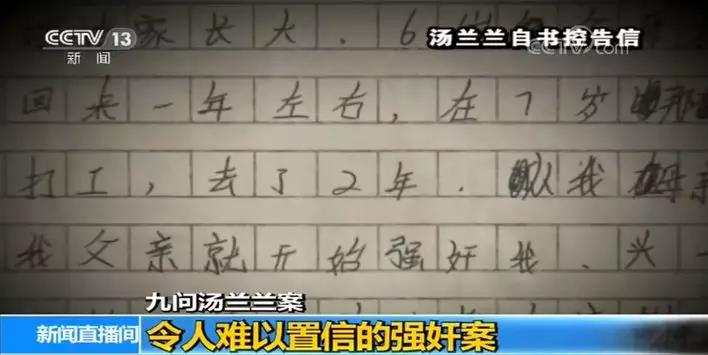 CCTV 13
新闻
汤兰兰自书控告信
CCTV.com
家长大.6岁
回来一年左右,在7岁那
打工,去了2年.以我母亲
我父亲就开始强奸我、兴一
九问汤兰兰案
新闻直播间
令人难以置信的强奸案